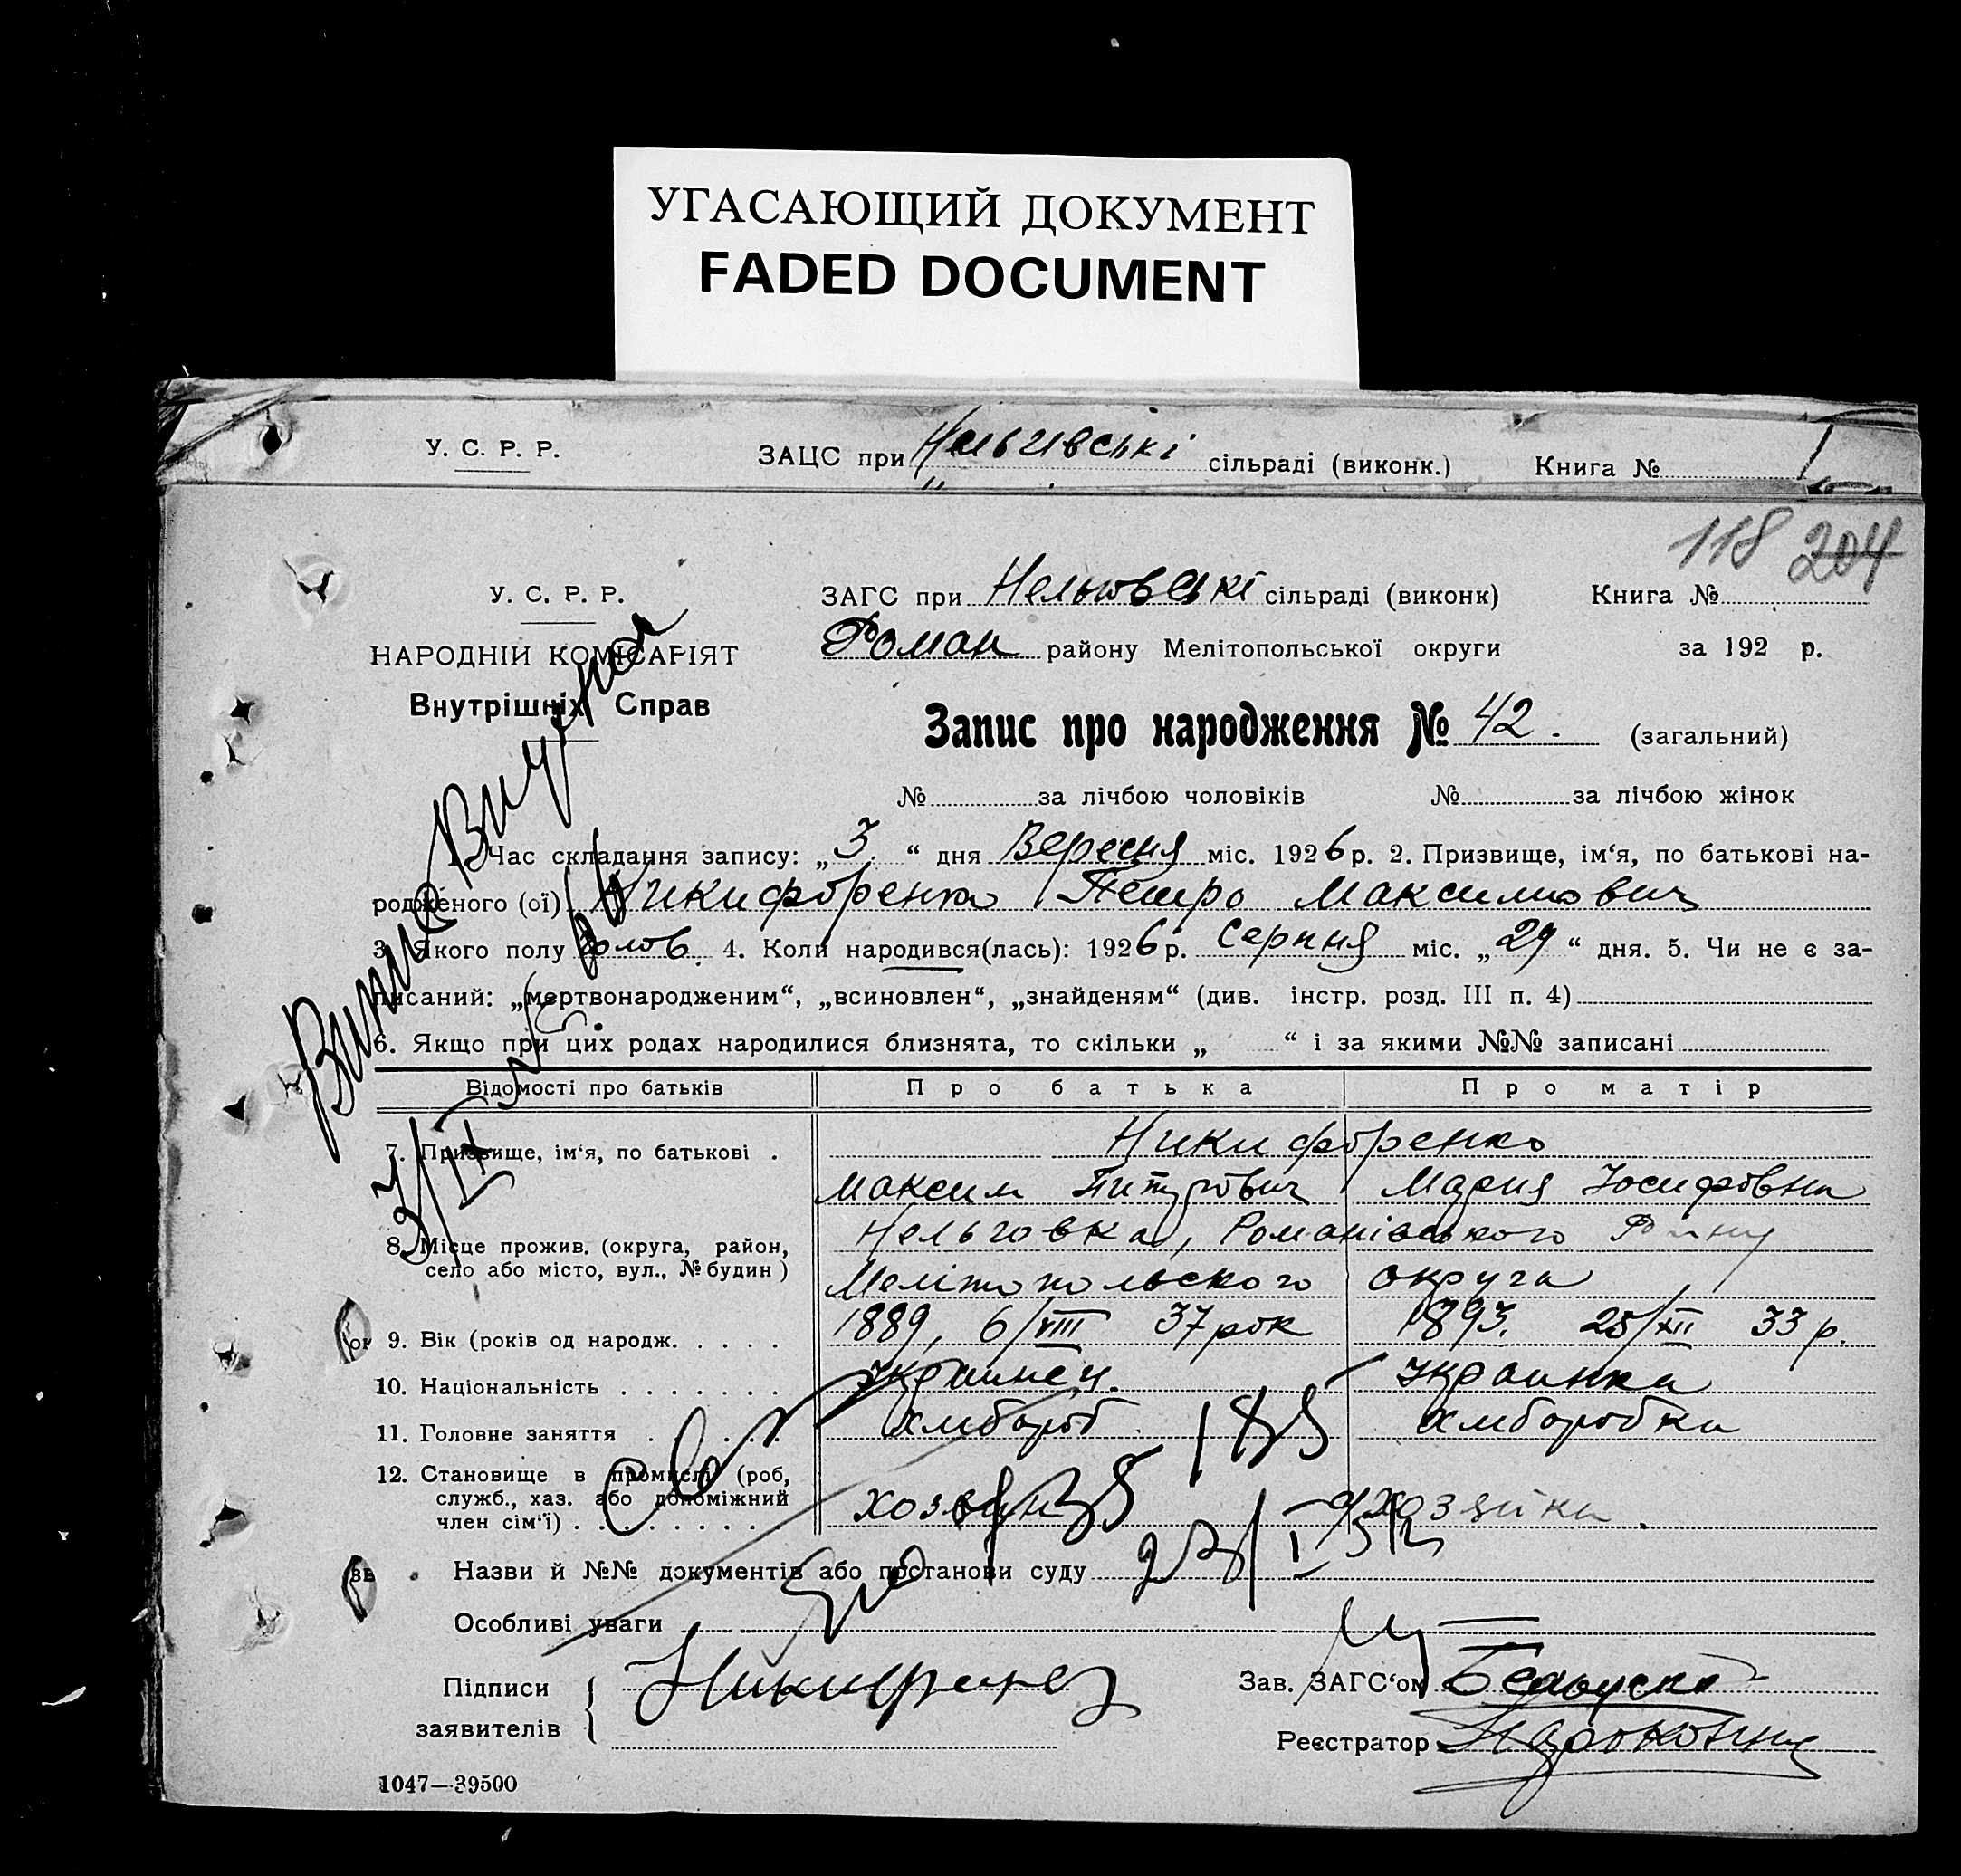 УГАСАЮЩИЙ ДОКУМЕНТ
FADED DOCUMENT
У. С. Р. Р. ЗАЦС при сільраді (виконк.) Книга №
118 204
У. С. Р. Р. ЗАГС при Нельговскі сільраді (виконк) Книга №
НАРОДНІЙ КОМІСАРІЯТ Роман району Мелітопольської округи за 192 р.
Внутрішніх Справ
Запис про народження № 42. (загальний)
№ за лічбою чоловіків № за лічбою жінок
1. Час складання запису: „3." дня Вересня міс. 1926 р. 2. Призвище, ім'я, по батькові на-
родженого (ої) Никифоренко Петро Максимович
3. Якого полу чолов. 4. Коли народився(лась): 1926 р. Серпня міс. „29" дня. 5. Чи не є за-
писаний: „мертвонародженим", „всиновлен", „знайденям" (див. інстр. розд. III п. 4)
6. Якщо при цих родах народилися близнята, то скільки „ " і за якими №№ записані
Відомості про батьків Про батька Про матір
7. Призвище, ім'я, по батькові . Никифоренко
Максим Мария Юсифовна
8. Місце прожив. (округа, район, Нельговка, Романівського
село або місто, вул., № будин) Мелітопольского округа
9. Вік (років од народж. . . . . 1889, 6/VIII 37 рок 1893. 25/XII 33 р.
10. Національність . . . . . . . Украинец. Украинка
11. Головне заняття . . . . . . Хлибороб Хлиборобка
12. Становище в промислі (роб, 185
служб., хаз. або допоміжний хозяин хозяйка.
член сім'ї) . . . . . . . . .
Назви й №№ документів або постанови суду
Особливі уваги
Підписи Зав. ЗАГС'ом
заявителів Реєстратор
1047—39500